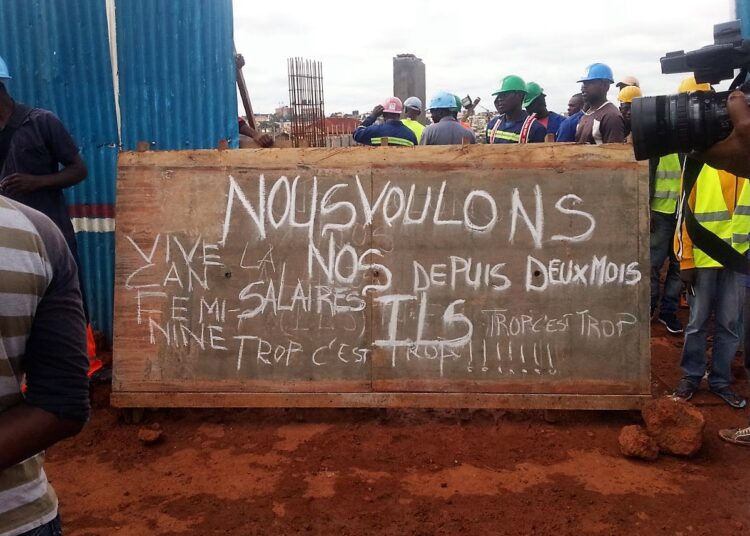 NOUS VOULONS
NOS DEPUIS DEUX MOIS
SALAIRES ILS TROP C'EST TROP
TROP C'EST TROP !!!!!!!
VIVE LA
CAN
FEMI-
NINE